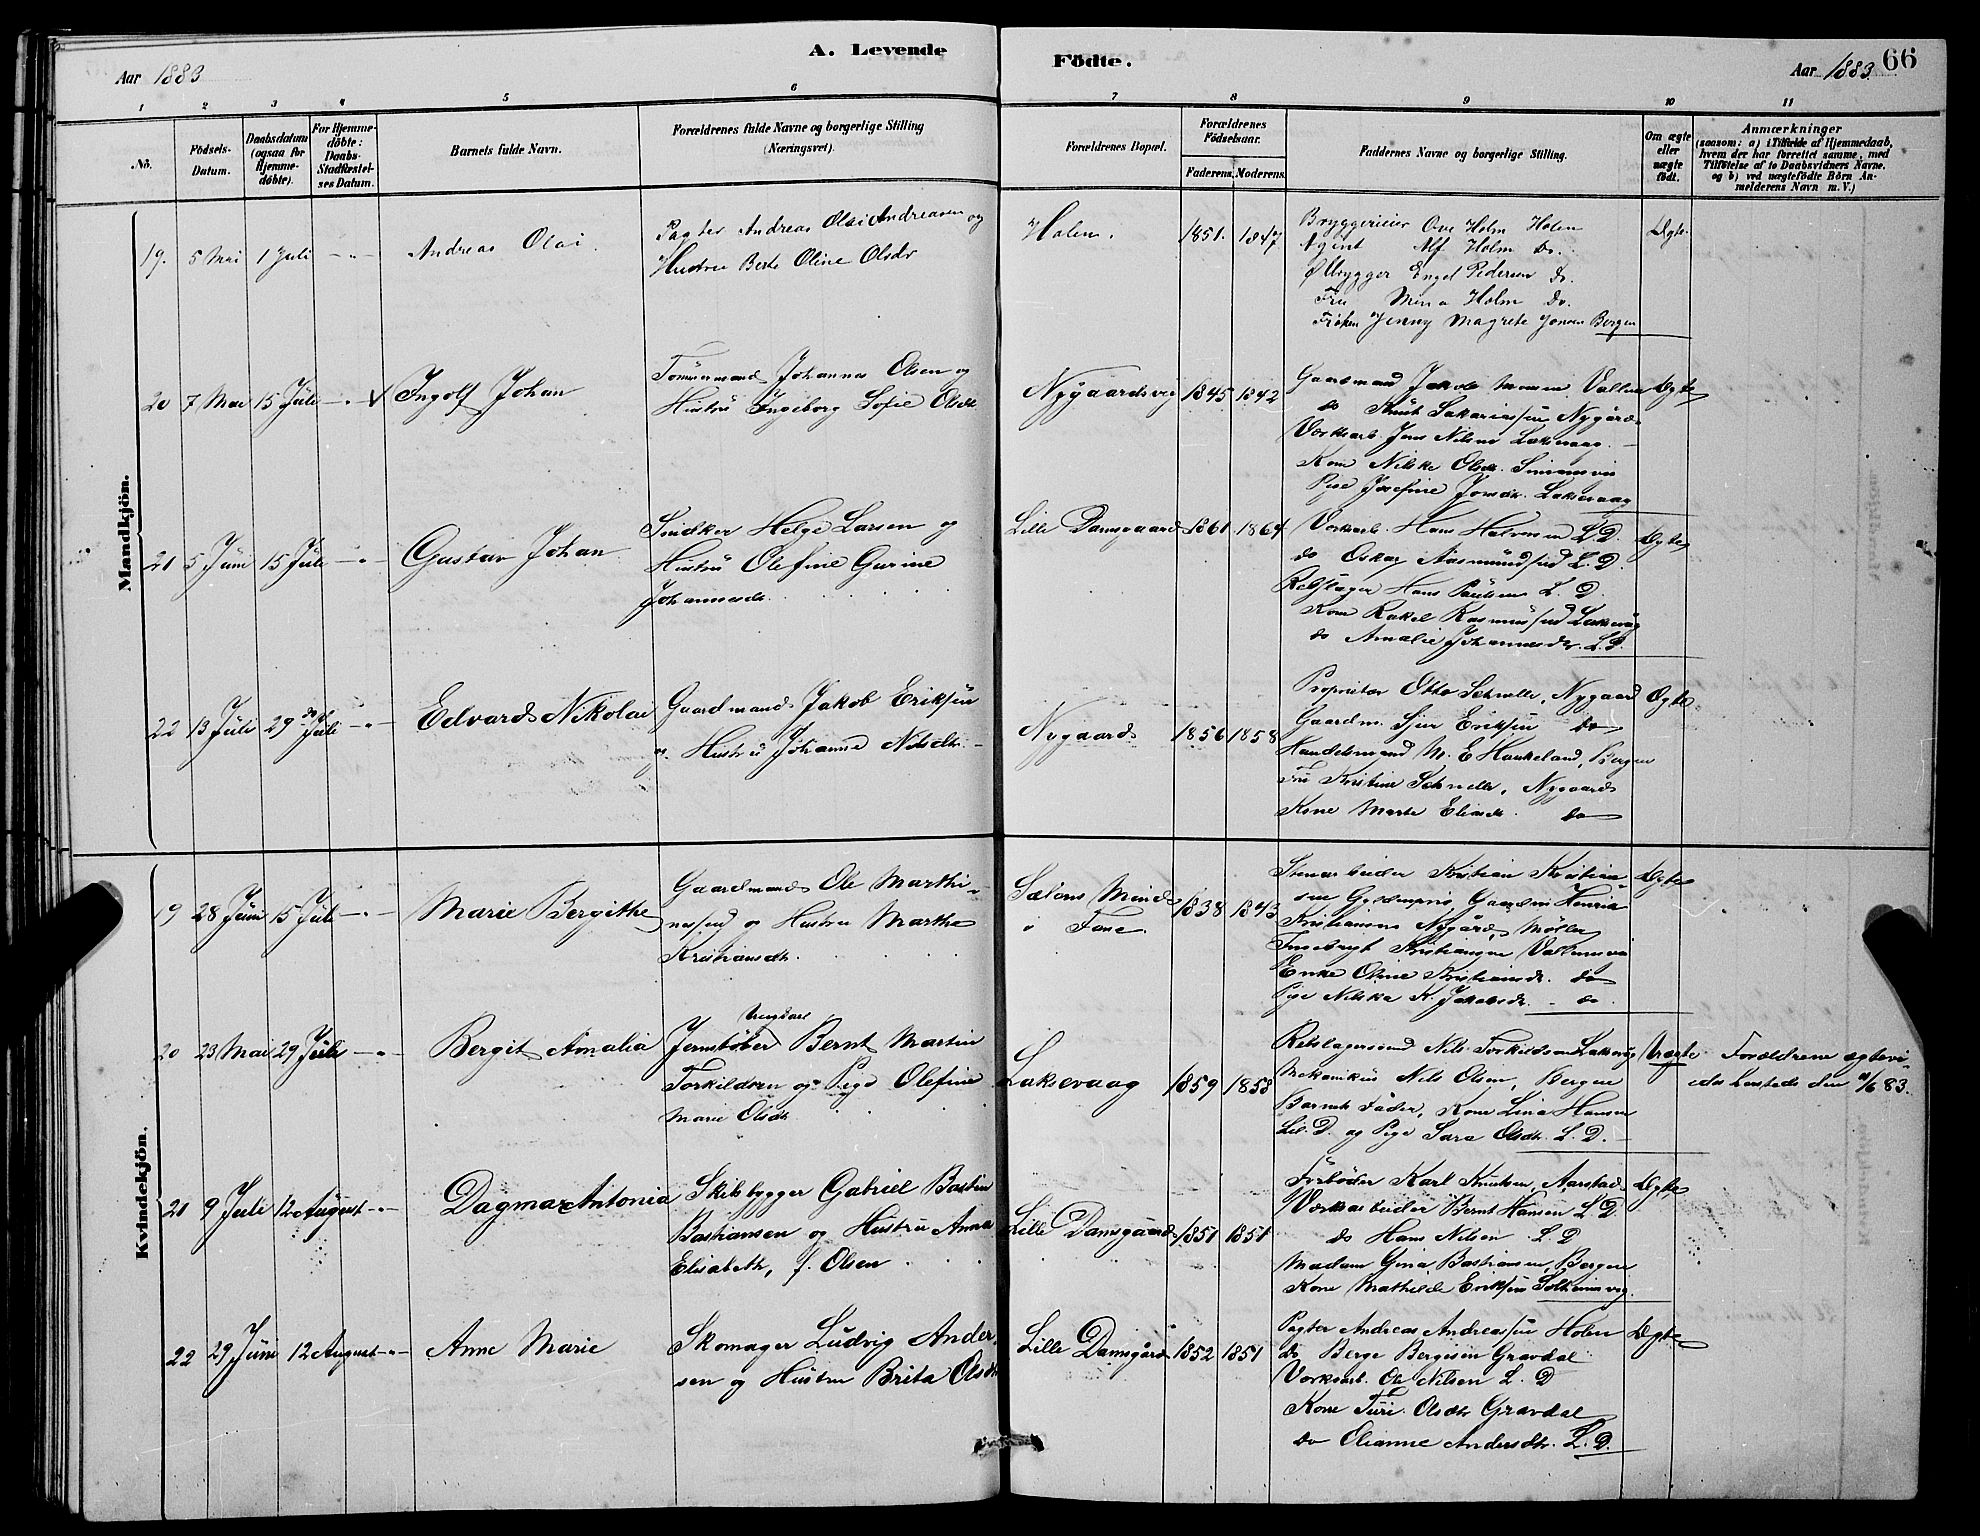 A. Levende Födte.
66
Aar 1883
Aar 1883
1 2 3 4 5 6 7 8 9 10 11
No.
Födsels-Datum.
Daabsdatum (ogsaa for Hjemme-döbte).
For Hjemme-döbte: Daabs-Stadfæstel-ses Datum.
Barnets fulde Navn.
Forældrenes fulde Navne og borgerlige Stilling (Næringsvei).
Forældrenes Bopæl.
Forældrenes Födselsaar.
Faderens. Moderens.
Faddernes Navne og borgerlige Stilling.
Om ægte eller uægte födt.
Anmærkninger
(saasom: a) i Tilfælde af Hjemmedaab,
hvem der har forrettet samme, med
Tilföielse af to Daabsvidners Navne,
og b) ved uægtefödte Börn An-
melderens Navn m. V.)
Mandkjön.
19. 5 Mai 1 Juli - " - Andreas Olai.
Pagter Andreas Olai Andreasen og
Hustru Berte Oline Olsdr
Holen. 1851. 1847
Bryggerieier Ove Holm Holen
Agent Alf Holm Do.
Ølbrygger Engel Pedersen do.
Fru Mina Holm do.
Frøken Jenny Magrete Jonsen Bergen
Ægte.
20 7 Mai 15 Juli - " - Ingolf Johan
Tømmermand Johannes Olsen og
Hustru Ingeborg Sofie Olsdtr
Nygaardsvig 1845 1842
Gaardmand Jakob Monsen Vallen
do Knut Sakariassen Nygård
Værksarb. Jens Nilsen Laksevaag.
Kone Nilske Olsdtr. Simonsvig
Pige Josefine Jonsdtr. Laksevaag
Ægte
21 5 Juni 15 Juli - " - Gustav Johan
Snedker Helge Larsen og
Hustru Olefine Gurine
Johannesdtr.
Lille Damsgaard 1861 1864
Værksarb. Hans Halvorsen L. D.
do Oskar Aasmundsen L. D.
Rebslager Hans Paulsen L. D.
Kone Rakel Rasmussen Laksevåg
do Amalie Johannesdtr. L. D.
Ægte
22 13 Juli 29 de Juli - " - Edvard Nikolai
Gaardmand Jakob Eriksen
og Hustru Johanne Nilsdtr.
Nygaard 1856 1858
Proprietær Otto Schnelle, Nygaard
Gaardm. Sjur Eriksen do
Handelsmand M. E. Haukeland, Bergen
Fru Kristine Schnelle, Nygaard
Kone Marte Eliasdtr. do
Ægte
Kvindekjön.
19 28 Juni 15 Juli - " - Marie Bergithe
Gaardmand Ole Marthi-
nessen og Hustru Marthe
Kristiansdtr.
Sælens Minde
" Fane. 1838 1843
Stenarbeider Kristian Kristian-
sen Gyldenpris, Gaardm. Henrik
Kristiansen Nygård, Møller
Ingebrigt Kristiansen
Enke Oline Kristiansdtr. do
Pige Nilske K. Jakobsdtr. - do
Ægte
20 23 Mai 29 Juli - " - Bergit Amalia
Ungkarl
Jernstøber Bernt Martin
Torkildsen og Pige Olefine
Marie Olsdtr.
Laksevaag 1859 1858
Rebslagersvend Nils Torkildsen Laksevåg
Mekanikus Nils Olsen, Bergen
Barnets Fader, Kone Lina Hansen
Lil. D. og Pige Sara Olsdtr. L. D.
Uægte
Forældrene ægtevi-
edes herstede den /6 83.
21 9 Juli 12 August - " - Dagmar Antonia
Skibsbygger Gabriel Bastin
Bastiansen og Hustru Anna
Elisabeth, f. Olsen
Lille Damsgaard 1851 1851
Karl Knutsen, Aarstad
Værksarbeider Bernt Hansen L. D.
do Hans Nilsen L. D
Madam Gina Bastiansen, Bergen
Kone Mathilde Eriksen Solheimsvig.
Ægte
22 29 Juni 12 August - " - Anne Marie
Skomager Ludvig Ander-
sen og Hustru Brita Olsdtr
Lille Damsgård 1852 1851
Pagter Andreas Andreassen Holen
do Berge Bergesen Gravdal
Værksarb. Ole Nilsen L. D
Kone Turi Olsdtr Gravdal
do Olianne Andersdtr. L. D.
Ægte